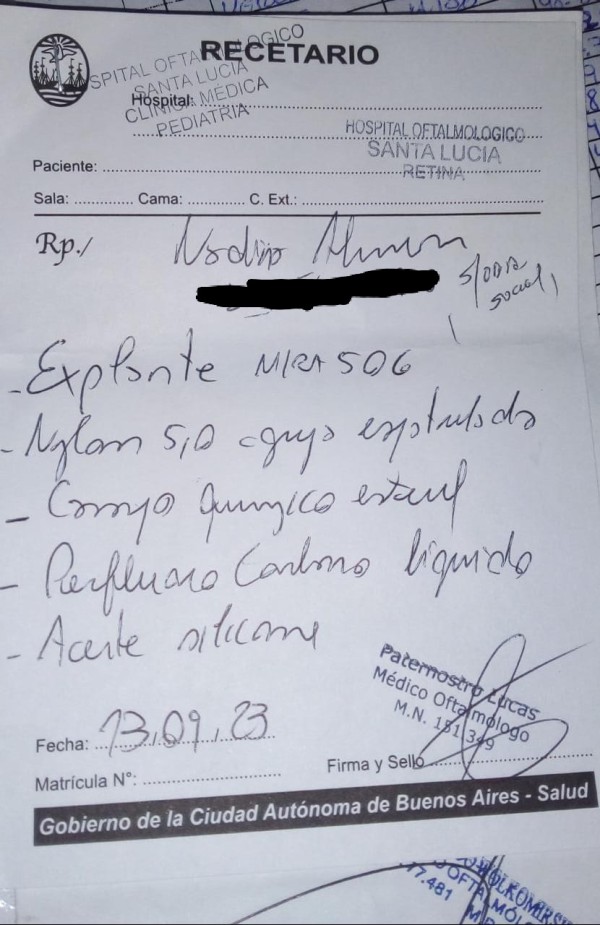 RECETARIO
HOSPITAL OFTALMOLOGICO
SANTA LUCIA
CLINICA MÉDICA
PEDIATRIA
Hospital:
HOSPITAL OFTALMOLOGICO
SANTA LUCIA
RETINA
Paciente:
Sala: Cama: C. Ext.:
Rp./
s/obra
social
- Explante MIRA 506
- Nylon 5,0 aguja espatulada
- Campo quirurgico esteril
- Perfluoro Carbono liquido
- Aceite silicone
Paternostro Lucas
Médico Oftalmólogo
M.N. 151.349
Fecha: 13,09,23
Firma y Sello
Matrícula N°:
Gobierno de la Ciudad Autónoma de Buenos Aires - Salud
17.481